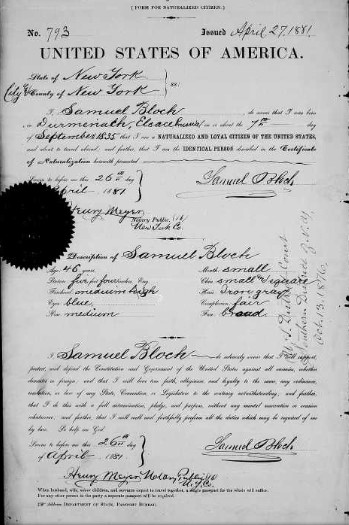 [FORM FOR NATURALIZED CITIZEN.]
No. 793 Issued April 27, 1881
UNITED STATES OF AMERICA.
State of New York
City & County of New York } ss:
I, Samuel Bloch do swear that I was born
in Durmenach, on or about the 7th day
of September 1835 that I am a NATURALIZED AND LOYAL CITIZEN OF THE UNITED STATES,
and about to travel abroad; and further, that I am the IDENTICAL PERSON described in the Certificate
of Naturalization herewith presented.
Sworn to before me this 26th day
of April 1881
Samuel Bloch
Henry Meyer
Notary Public
New York Co.
Description of Samuel Bloch
Age: 46 years Mouth: small
Stature: five feet four inches, Eng. Chin: small & square
Forehead: medium high Hair: Iron gray
Eyes: blue Complexion: fair
Nose: medium Face: broad
U.S. District Court
Southern District of N.Y.
Oct. 13, 1876.
I, Samuel Bloch do solemnly swear that I will support,
protect, and defend the Constitution and Government of the United States against all enemies, whether
domestic or foreign; and that I will bear true faith, allegiance, and loyalty to the same, any ordinance,
resolution, or law of any State, Convention, or Legislature to the contrary notwithstanding; and further,
that I do this with a full determination, pledge, and purpose, without any mental reservation or evasion
whatsoever; and further, that I will well and faithfully perform all the duties which may be required of me
by law. So help me God.
Sworn to before me this 26th day
of April 1881
Samuel Bloch
Henry Meyer Notary Public
N.Y. Co.
When husband, wife, minor children, and servants expect to travel together, a single passport for the whole will suffice.
For any other person in the party a separate passport will be required.
Address DEPARTMENT OF STATE, PASSPORT BUREAU.